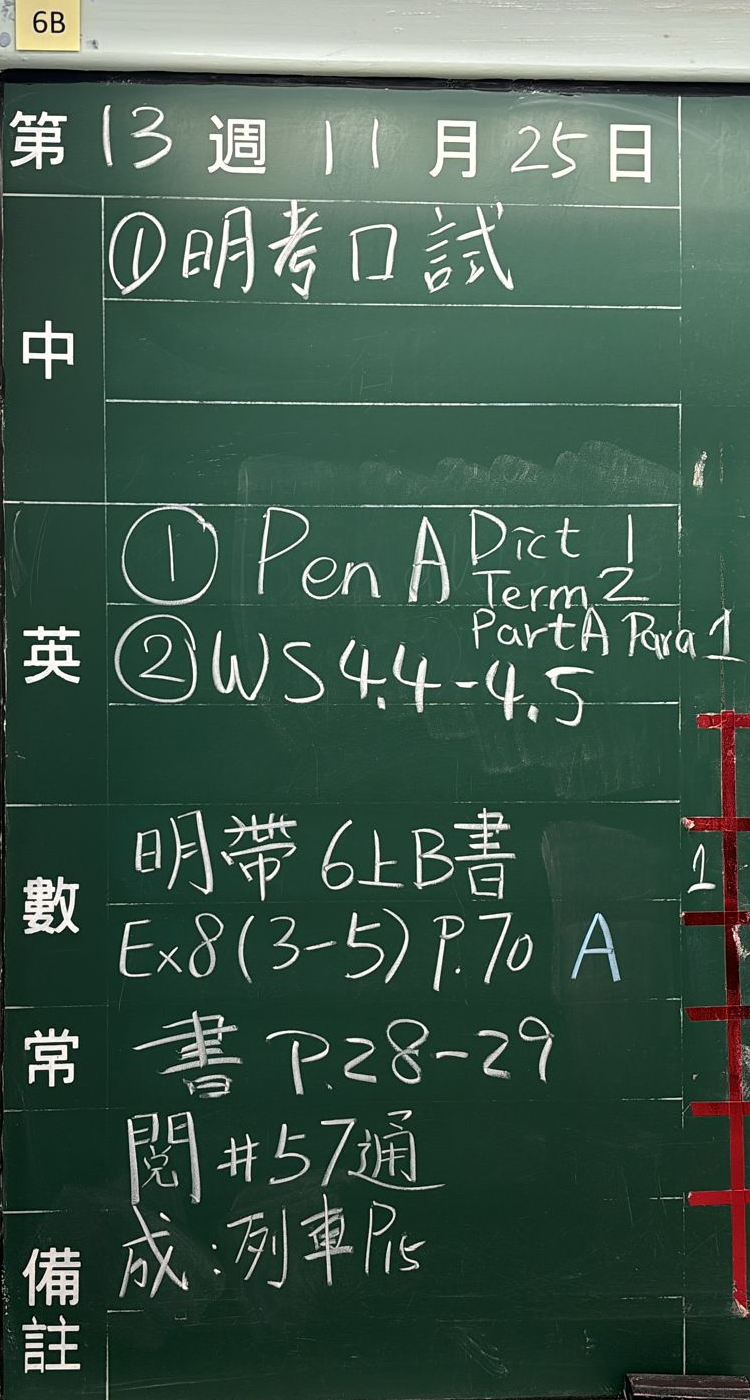 6B
第 13 週 11 月 25 日
中
① 明考口試
英
① Pen A Dict 1
Term 2
Part A Para 1
② WS 4.4-4.5
數
明帶 6上B書
Ex8(3-5) P.70 A
1
常
書 P.28-29
閱 #57通
成:列車P15
備
註